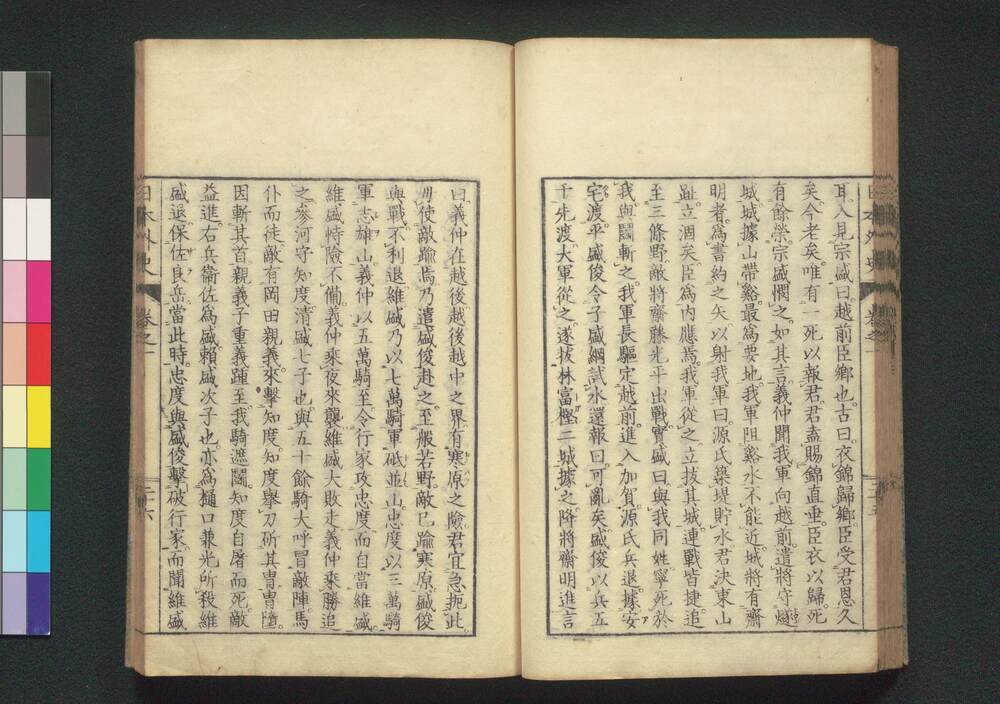 耳入見宗盛曰越前臣鄉也古曰衣錦歸鄉臣受君恩久
矣今老矣唯有一死以報君君盍賜錦直垂臣衣以歸死
有餘榮宗盛憫之如其言義仲聞我軍向越前遣將守燧
城城據山帶谿最為要地我軍阻谿水不能近城將有齋
明者為書約之矢以射我軍曰源氏築堤貯水君決東山
趾立涸矣臣為內應焉我軍從之立拔其城連戰皆捷追
至三條野敵將齋藤光平出戰實盛曰與我同姓寧死於
我與鬪斬之我軍長驅定越前進入加賀源氏兵退據安
宅渡平盛俊令子盛綱試水還報曰可亂矣盛俊以兵五
千先渡大軍從之遂拔林富樫二城據之降將齋明進言
曰義仲在越後越後越中之界有寒原之險君宜急扼此
毋使敵踰焉乃遣盛俊赴之至般若野敵已踰寒原盛俊
與戰不利退維盛乃以七萬騎軍砥並山忠度以三萬騎
軍志雄山義仲以五萬騎至令行家攻忠度而自當維盛
維盛恃險不備義仲乘夜來襲維盛大敗走義仲乘勝追
之參河守知度清盛七子也與五十餘騎大呼冒敵陣馬
仆而徒敵有岡田親義來擊知度知度舉刀斫其冑冑墮
因斬其首親義子重義踵至我騎遮鬪知度自屠而死敵
益進右兵衛佐為盛賴盛次子也亦為樋口兼光所殺維
盛退保佐良岳當此時忠度與盛俊擊破行家而聞維盛
日本外史
卷之一
二十六